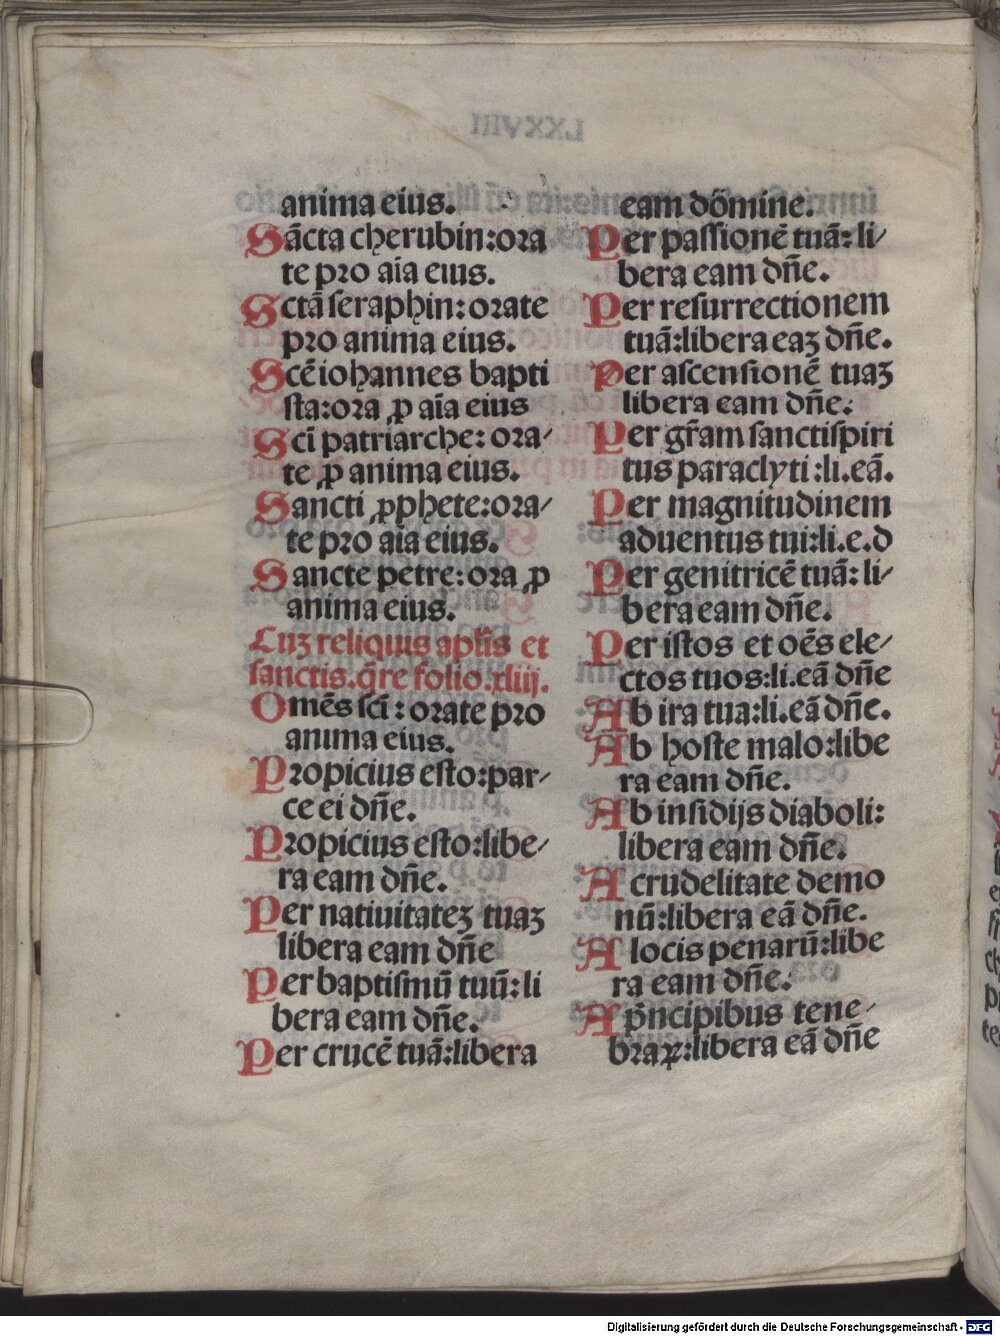 anima eius.
Sācta cherubin: ora
te pro aīa eius.
Sctā seraphin: orate
pro anima eius.
Scē iohannes bapti
sta: ora ꝓ aīa eius
Scī patriarche: ora/
te ꝓ anima eius.
Sancti ꝓphete: ora/
te pro aīa eius.
Sancte petre: ora ꝓ
anima eius.
Cuʒ reliquis aplīs et
sanctis. q̄re folio. xliij.
Omēs scī: orate pro
anima eius.
Propicius esto: par/
ce ei dn̄e.
Propicius esto: libe/
ra eam dn̄e.
Per natiuitateʒ tuaʒ
libera eam dn̄e
Per baptismū tuū: li
bera eam dn̄e.
Per crucē tuā: libera
eam dōmine.
Per passionē tuā: li/
bera eam dn̄e.
Per resurrectionem
tuā: libera eaʒ dn̄e.
Per ascensionē tuaʒ
libera eam dn̄e.
Per gr̄am sanctispiri
tus paraclyti: li. eā.
Per magnitudinem
aduentus tui: li. e. d
Per genitricē tuā: li/
bera eam dn̄e.
Per istos et oēs ele/
ctos tuos: li. eā dn̄e
Ab ira tua: li. eā dn̄e.
Ab hoste malo: libe
ra eam dn̄e.
Ab insidijs diaboli:
libera eam dn̄e.
A crudelitate demo
nū: libera eā dn̄e.
A locis penarū: libe
ra eam dn̄e.
A pn̄cipibus tene/
braꝝ: libera eā dn̄e
Digitalisierung gefördert durch die Deutsche Forschungsgemeinschaft - DFG